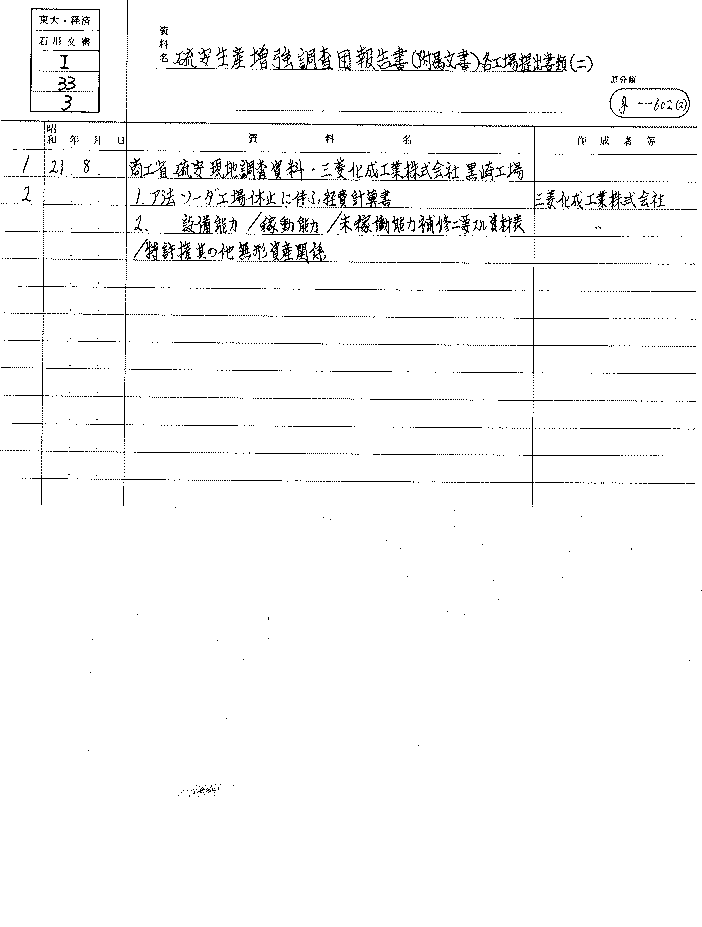 東大・経済
石川文書
I
33
3
資料名 硫安生産増強調査団報告書(附属文書)各工場提出書類(二)
原分類
-602(2)
昭和 年 月 日 資料名 作成者等
1 21 8 商工省硫安現地調査資料・三菱化成工業株式会社黒崎工場
2 1. ア法ソーダ工場休止に伴ふ経費計算書 三菱化成工業株式会社
2. 設備能力/稼動能力/未稼働能力補修ニ要スル資材表 〃
/特許権其の他無形資産関係